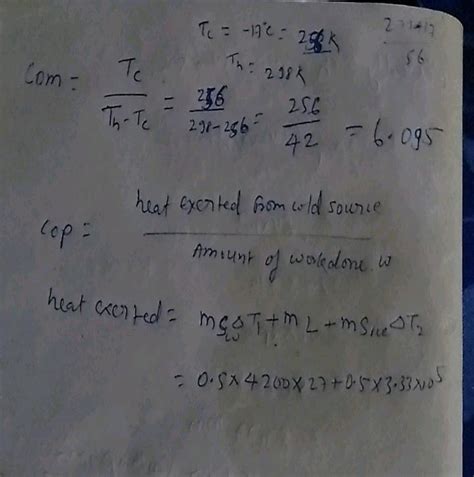 Tc = -17°C = 256K
Th = 298K
Com = Tc / Th - Tc = 256 / 298 - 256 = 256 / 42 = 6.095
Cop = heat exerted from cold source / Amount of workdone. w
heat exerted = m Sw ΔT1 + m L + m Sice ΔT2
= 0.5 × 4200 × 27 + 0.5 × 3.33×10^5